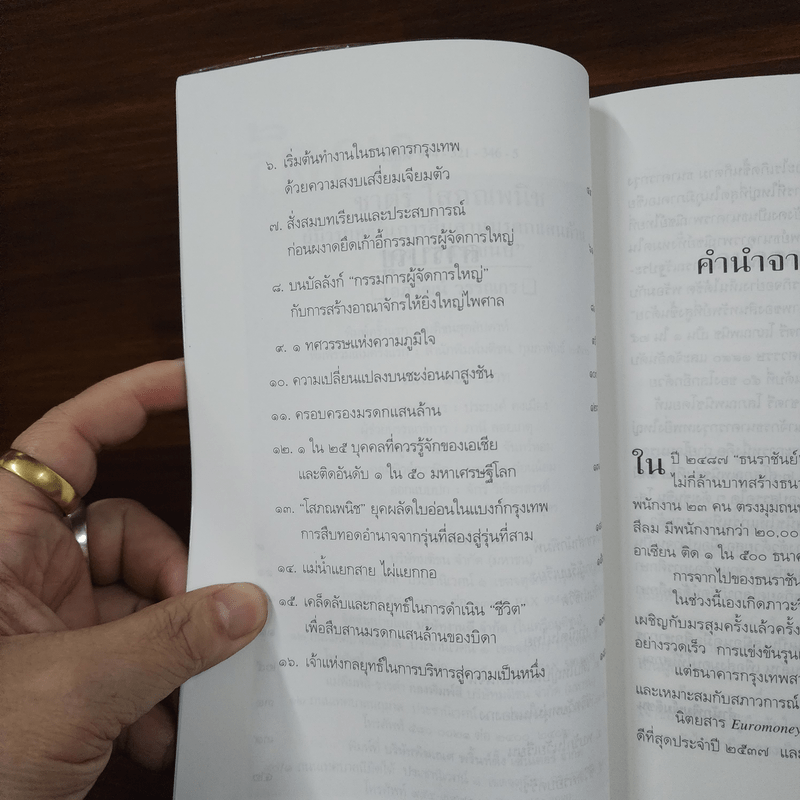 ๖. เริ่มต้นทำงานในธนาคารกรุงเทพ
ด้วยความสงบเสงี่ยมเจียมตัว
๗. สั่งสมบทเรียนและประสบการณ์
ก่อนผงาดยึดเก้าอี้กรรมการผู้จัดการใหญ่
๘. บนบัลลังก์ “กรรมการผู้จัดการใหญ่”
กับการสร้างอาณาจักรให้ยิ่งใหญ่ไพศาล
๙. ๑ ทศวรรษแห่งความภูมิใจ
๑๐. ความเปลี่ยนแปลงบนชะง่อนผาสูงชัน
๑๑. ครอบครองมรดกแสนล้าน
๑๒. ๑ ใน ๒๕ บุคคลที่ควรรู้จักของเอเชีย
และติดอันดับ ๑ ใน ๕๐ มหาเศรษฐีโลก
๑๓. “โสภณพนิช” ยุคผลัดใบอ่อนในแบงก์กรุงเทพ
การสืบทอดอำนาจจากรุ่นที่สองสู่รุ่นที่สาม
๑๔. แม่น้ำแยกสาย ไผ่แยกกอ
๑๕. เคล็ดลับและกลยุทธ์ในการดำเนิน “ชีวิต”
เพื่อสืบสานมรดกแสนล้านของบิดา
๑๖. เจ้าแห่งกลยุทธ์ในการบริหารสู่ความเป็นหนึ่ง
คำนำจา
ใน ปี ๒๔๘๗ “ธนราชันย์”
ไม่กี่ล้านบาทสร้างธนา
พนักงาน ๒๓ คน ตรงมุมถนน
สีลม มีพนักงานกว่า ๒๐,๐๐
อาเซียน ติด ๑ ใน ๕๐๐ ธนาค
การจากไปของธนราชัน
ในช่วงนี้เองเกิดภาวะวิ
เผชิญกับมรสุมครั้งแล้วครั้ง
อย่างรวดเร็ว การแข่งขันรุนแ
แต่ธนาคารกรุงเทพสา
และเหมาะสมกับสภาวการณ์
นิตยสาร Euromoney
ดีที่สุดประจำปี ๒๕๓๗ แล